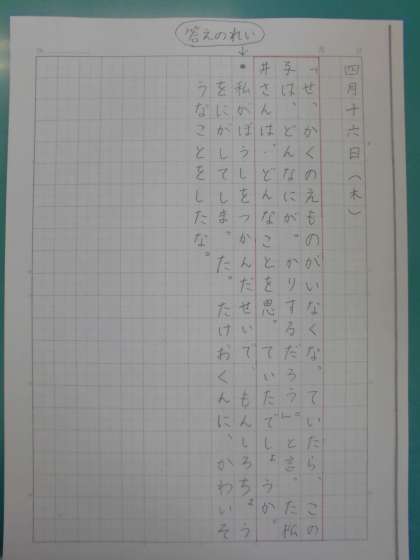 答えのれい
四月十六日(木)
「せっかくのえものがいなくなっていたら、この
子は、どんなにがっかりするだろう。」と言った松
井さんは、どんなことを思っていたでしょうか。
・私がぼうしをつかんだせいで、もんしろちょう
をにがしてしまった。たけおくんに、かわいそ
うなことをしたな。